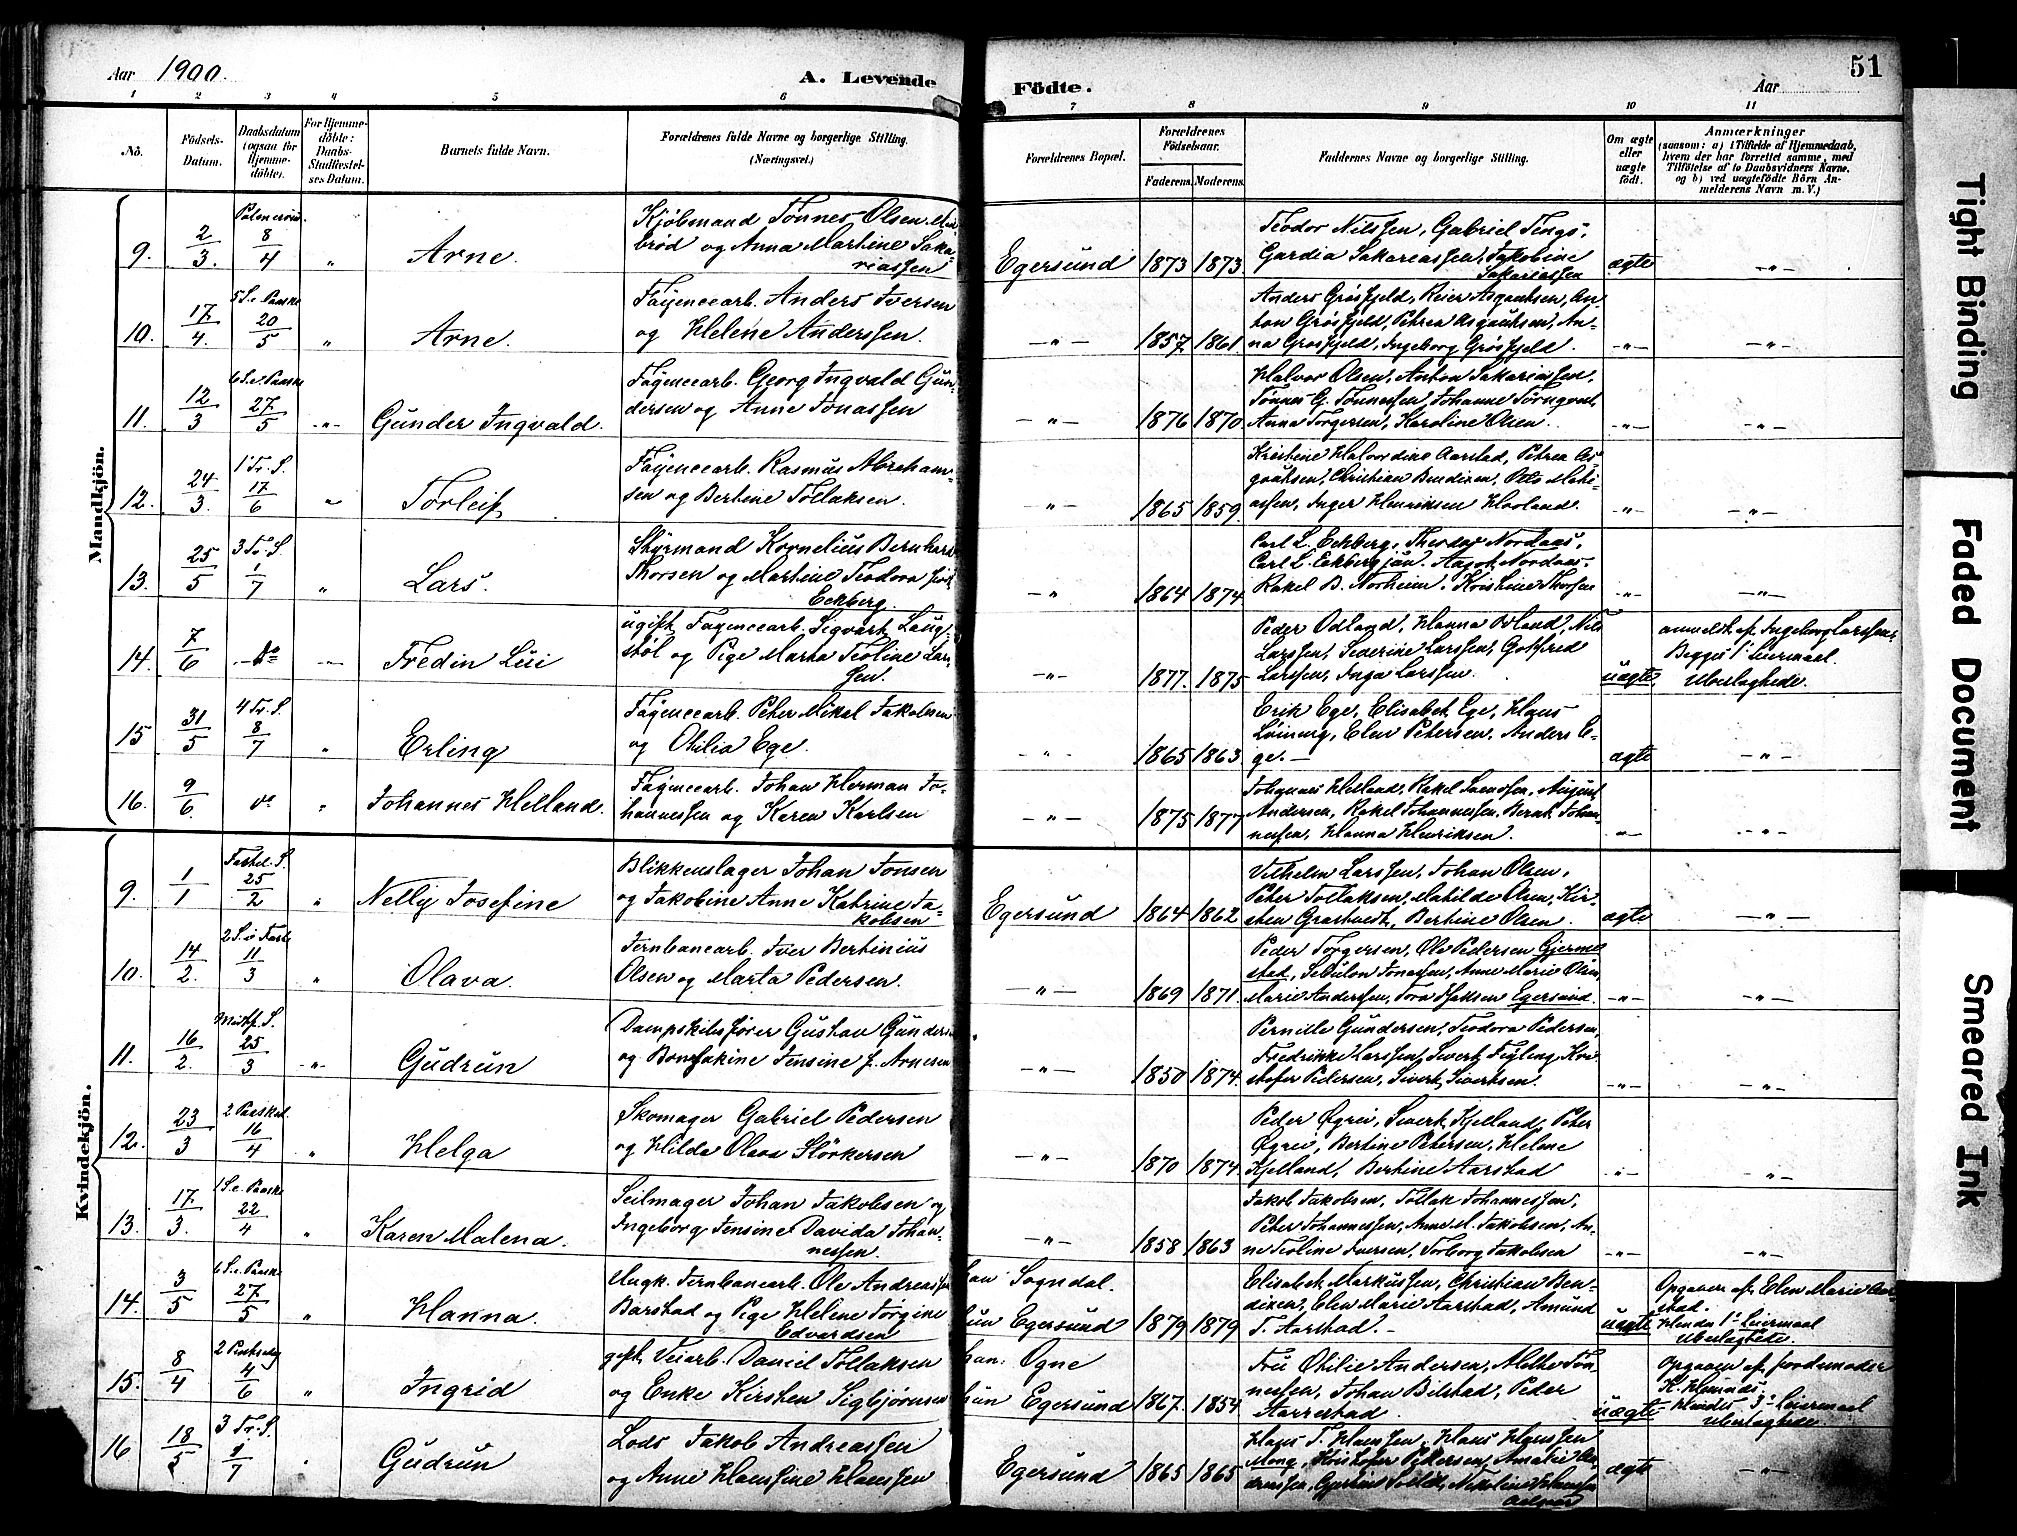 Aar 1900.
A. Levende Födte.
Aar
51
1 2 3 4 5 6 7 8 9 10 11
No.
Födsels-Datum.
Daabsdatum (ogsaa for Hjemme-döbte).
For Hjemme-döbte: Daabs-Stadfæstel-ses Datum.
Barnets fulde Navn.
Forældrenes fulde Navne og borgerlige Stilling. (Næringsvei.)
Forældrenes Bopæl.
Forældrenes Födselsaar.
Faderens. Moderens.
Faddernes Navne og borgerlige Stilling.
Om ægte eller uægte födt.
Anmærkninger
(saasom: a) i Tilfælde af Hjemmedaab, hvem der har forrettet samme, med Tilföielse af to Daabsvidners Navne, og b) ved uægtefödte Börn An-melderens Navn m. V.)
Mandkjön.
9. 2/3. 8/4 " Arne. Kjøbmand Tønnes Olsen og Anna Martine Saka-riassen Egersund 1873 1873 Teodor Nilssen, Gabriel Tengs, Gardia Sakariassen, Jakobine Sakariassen ægte -"-
10. 17/4. 5 S. e. Paaske 20/5 " Arne. Fayencearb. Anders Iversen og Helene Anderssen. -"- 1857 1861. Anders Grøsfjeld, Reier Asgautsen, An-ton Grøsfjeld, Petrea Asgautsen, An-na Grøsfjeld, Ingeborg Grøsfjeld. -"- -"-
11. 12/3 6 S. e. Paaske 27/5 -"- Gunder Ingvald. Fayencearb. Georg Ingvald Gun-dersen og Anne Jonassen -"- 1876 1870. Halvor Olsen, Anton Sakariassen, Tønnes G. Tønnessen, Johanne Tørnqvist, Anna Torgersen, Karoline Olsen. -"- -"-
12. 24/3. 1 Tr. S. 17/6 " Torleif Fayencearb. Rasmus Abraham-sen og Bertine Tollaksen. -"- 1865 1859. Kristine Halvordine Aarstad, Petrea As-gautsen, Christian Bendixen, Otto Mati-assen, Inger Henriksen Havland. -"- -"-
13. 25/5 3 Tr. S. 1/7 " Lars. Styrmand Kornelius Bernhard Thorsen og Martine Teodora født Eckberg. -"- 1864 1874. Carl L. Eckberg, Theodor Nordaas, Carl L. Eckberg jun. Aagot Nordaas, Rakel B. Norheim, Kristine Thorsen -"- -"-
14. 7/6 do -"- Fredin Lui ugift Fayencearb. Sigvart Laug-støl og Pige Marta Teoline Lar-sen. -"- 1877. 1875 Peder Odland, Hanna Odland, Nils Larssen, Severine Larssen, Gotfred Larssen, Inga Larssen. uægte. anmeldt af Ingeborg Larssen, Begges 1' Leiermaal. Uberlaghede.
15 31/5 4 Tr. S. 8/7 " Erling Fayencearb. Peter Mikal Jakobsen og Otilia Ege. -"- 1865 1863. Erik Ege, Elisabet Ege, Klaus Løining, Elen Petersen, Anders E-ge. ægte -"-
16. 9/6. do " Johannes Helland. Fayencearb. Johan Herman Jo-hannessen og Karen Karlsen -"- 1875 1877 Johannes Helland, Rakel Svendsen, August Andersen, Rakel Johannessen, Bernt Johan-nessen, Hanna Henriksen. -"- -"-
Kvindekjön.
9. 1/1 Fastel. S. 25/2 " Nelly Josefine Blikkenslager Johan Jonsen og Jakobine Anne Katrine Ja-kobsen Egersund 1864 1862 Vilhelm Larssen, Johan Olsen, Peter Tollaksen, Matilde Olsen, Kir-sten Grastveit, Bertine Olsen. ægte -"-
10. 14/2. 2 S. i Faste 11/3 " Olava. Jernbanearb. Iver Bertinius Olsen og Marta Pedersen. -"- 1869 1871. Peder Torgersen, Ole Pedersen Gjerme-stad, Sebulon Jonassen, Anne Marie Olsen, Marie Anderssen, Tora Isaksen Egersund. -"- -"-
11. 16/2. Midtf. S. 25/3 -"- Gudrun Dampskibsfører Gustav Gundersen og Jensine f. Arnesen -"- 1850 1874. Pernille Gundersen, Teodora Pedersen, Fredrikke Larssen, Sivert Feyling, Kri-stofer Pedersen, Sivert Sivertsen. -"- -"-
12. 23/3 2 Paaskd. 16/4 " Helga Skomager Gabriel Pedersen og Hilda Olava Størkersen -"- 1870 1874. Peder Øgrei, Sivert Kjelland, Peter Øgrei, Bertine Petersen, Helene Kjelland, Bertine Aarstad -"- -"-
13. 17/3. 1 S. e. Paaske 22/4 " Karen Malena. Seilmager Johan Jakobsen og Ingeborg Jensine Davida Johan-nessen. -"- 1858 1863 Jakob Jakobsen, Tollak Johannessen, Peter Johannessen, Anne M. Jakobsen, An-ne Teoline Iversen, Torborg Jakobsen -"- -"-
14. 3/5 6 S. e. Paaske 27/5 " Hanna. Ungk. Jernbanearb. Ole Andreassen Barstad og Pige Helene Jørgine Edvardsen han Sogndal. hun Egersund 1879 1879 Elisabet Markussen, Christian Ben-dixen, Elen Marie Aarstad, Amund T. Aarstad. uægte Opgaven af Elen Marie Aar-stad. Hendes 1' Leiermaal Uberlagtede.
15. 8/4 2 Pintsedag 4/6 " Ingrid gift Veiarb. Daniel Tollaksen og Enke Kirsten Sigbjørnsen han: Ogne hun Egersund 1867. 1854 Fru Otilie Andersen, Alette Tøn-nessen, Johan Bilstad, Peder Aarrestad. uægte Opgaven af Jordemoder K. Hendes 3' Leiermaal Uberlaghede.
16 18/5 3 Tr. S. 1/7 Gudrun Lods Jakob Andreassen og Anne Hanssine Hanssen Egersund 1865 1865 Hans T. Hanssen, Hans Hanssen Mong, Kristofer Pedersen, Amalie An-dreassen, Nikoline Hanssen ægte -"-
Tight Binding
Faded Document
Smeared Ink